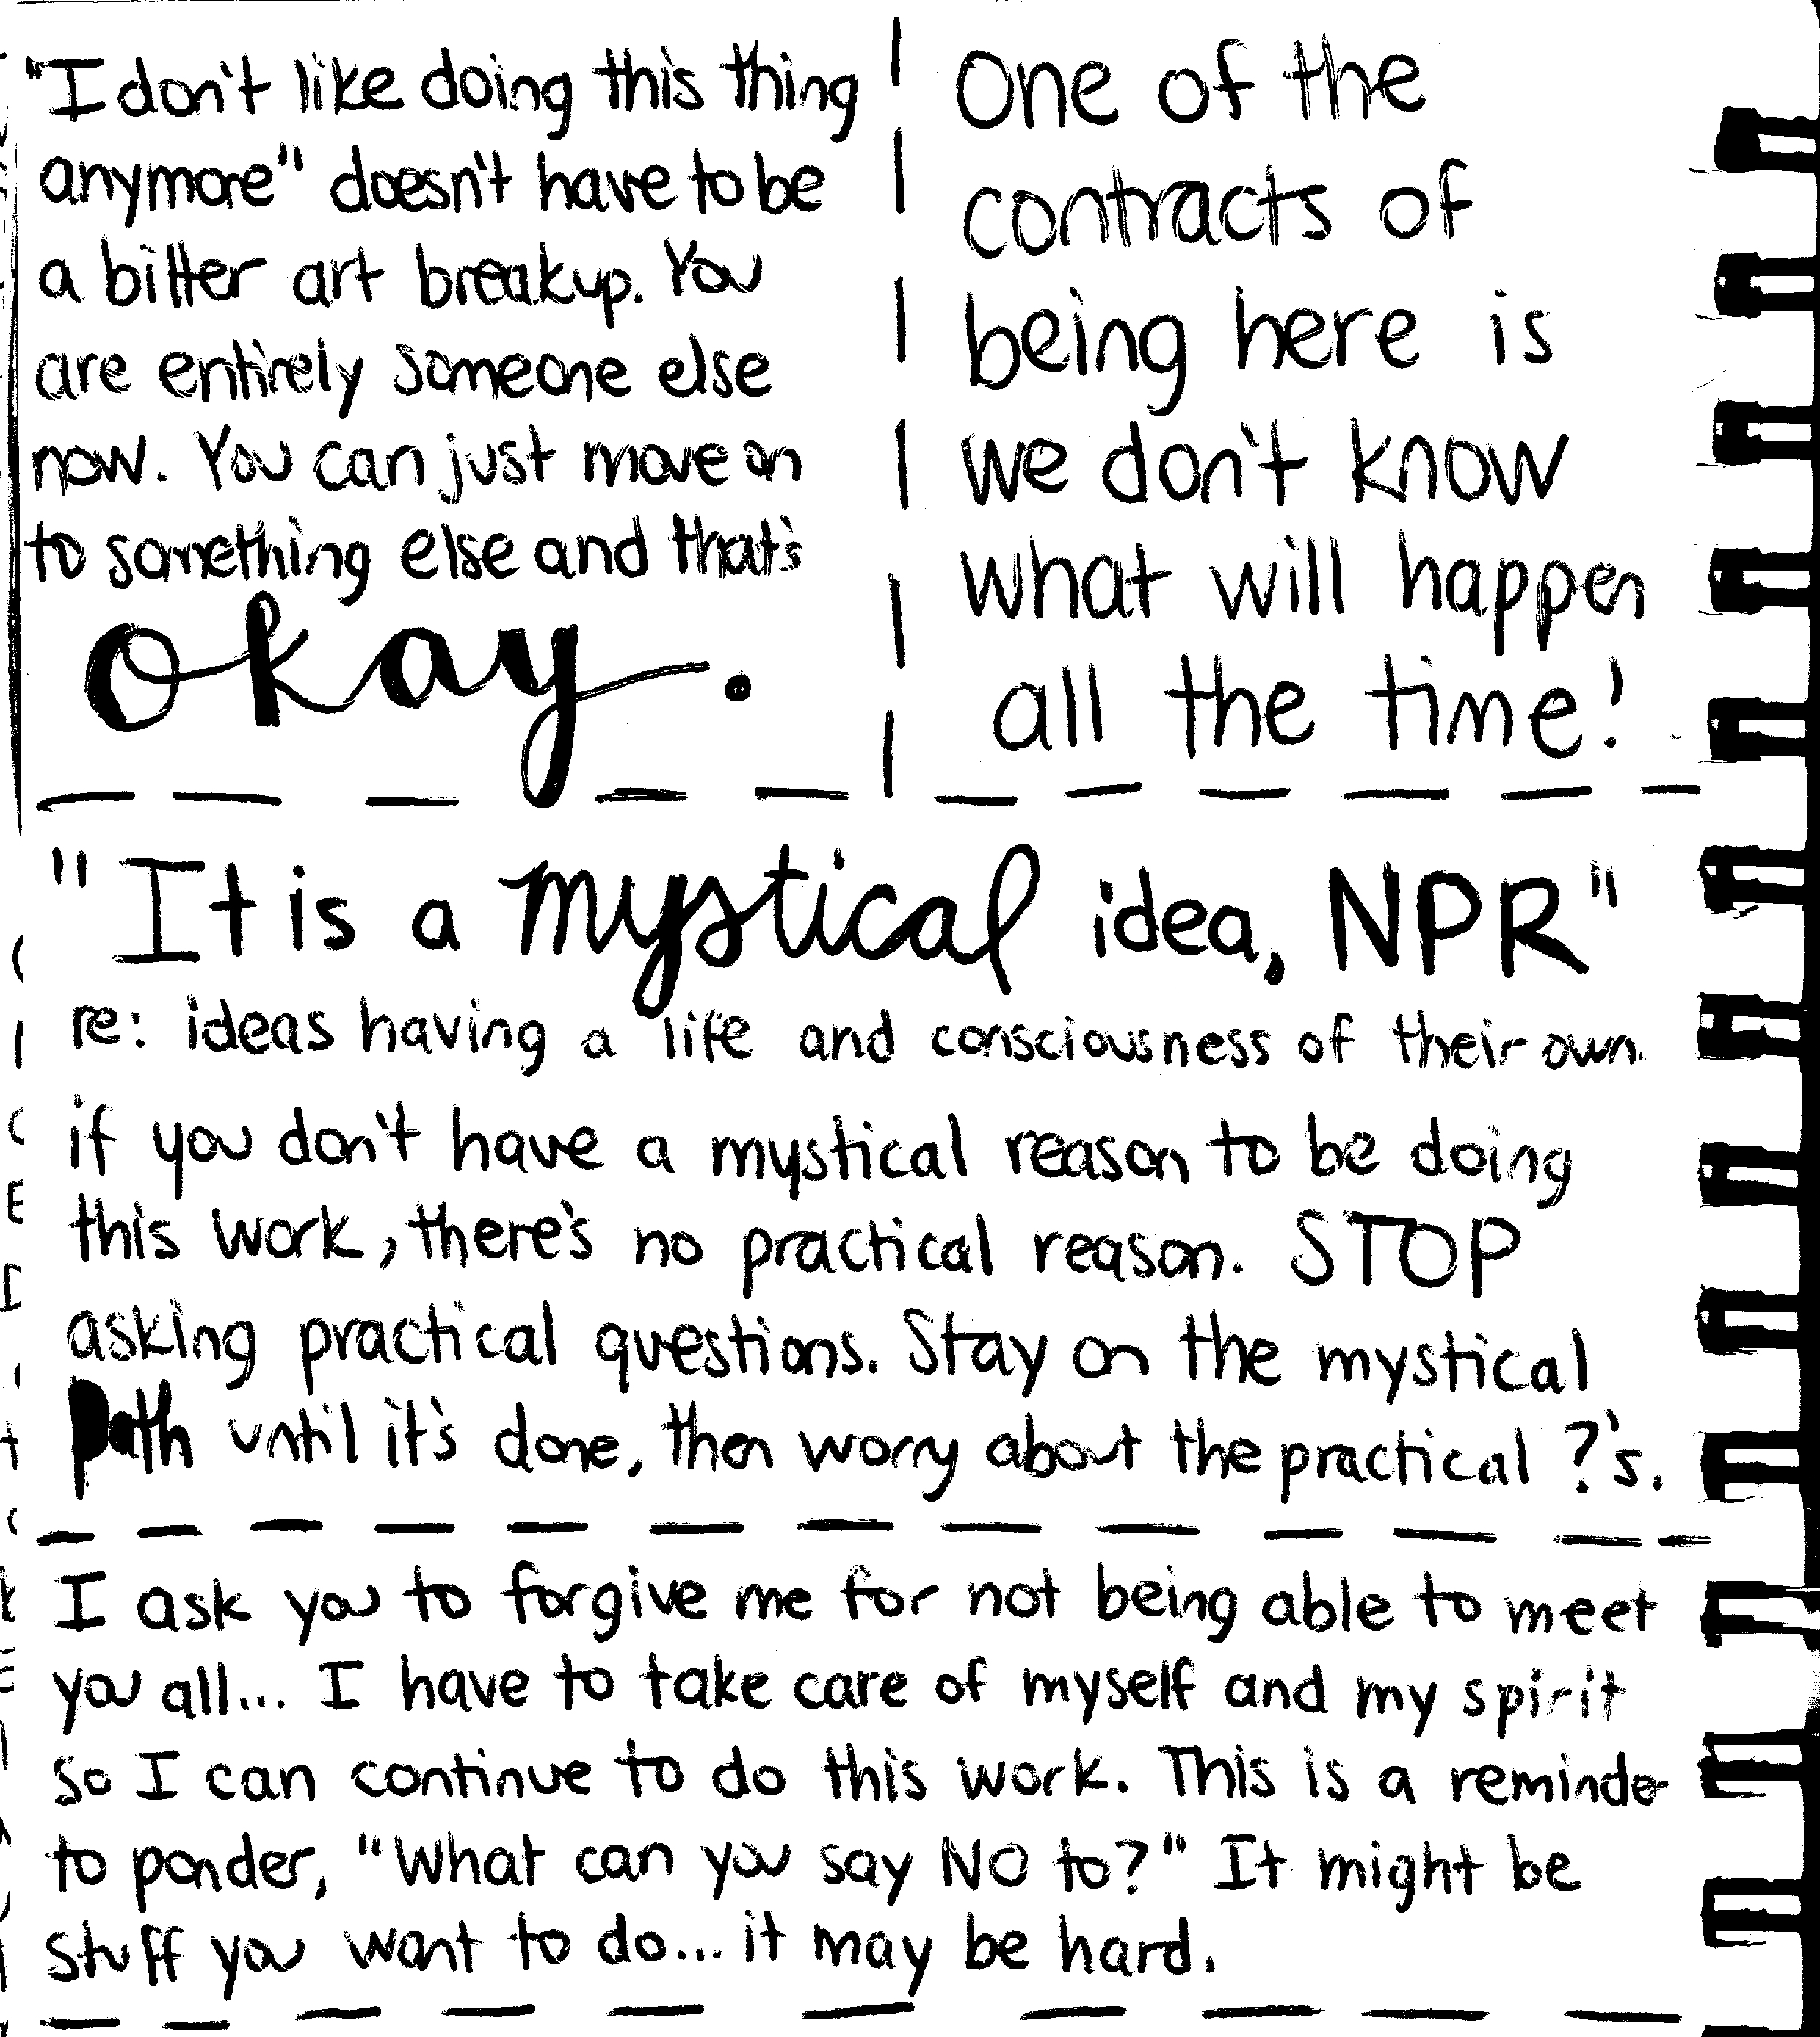 "I don't like doing this thing
anymore" doesn't have to be
a bitter art breakup. You
are entirely someone else
now. You can just move on
to something else and that's
okay.
One of the
contracts of
being here is
we don't know
what will happen
all the time!
"It is a mystical idea, NPR"
re: ideas having a life and consciousness of their own.
if you don't have a mystical reason to be doing
this work, there's no practical reason. STOP
asking practical questions. Stay on the mystical
path until it's done, then worry about the practical ?'s.
I ask you to forgive me for not being able to meet
you all... I have to take care of myself and my spirit
so I can continue to do this work. This is a reminder
to ponder, "What can you say NO to?" It might be
stuff you want to do... it may be hard.